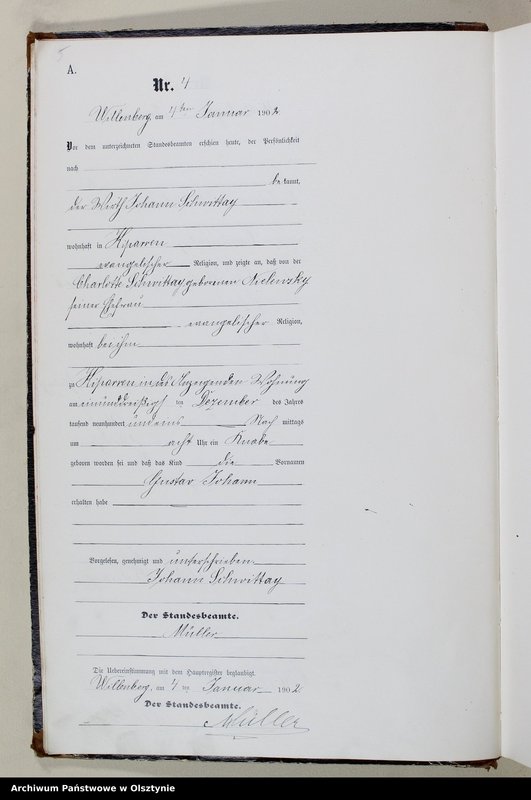 A.
Nr. 4
Willenberg, am 4ten Januar 1902
Vor dem unterzeichneten Standesbeamten erschien heute, der Persönlichkeit
nach
bekannt,
der Wirth Johann Schwittay
wohnhaft in Kiparren
evangelischer Religion, und zeigte an, daß von der
Charlotte Schwittay, geborenen
seiner Ehefrau
evangelischer Religion,
wohnhaft bei ihm
zu Kiparren in des Anzeigenden Wohnung
am einunddreißigsten Dezember des Jahres
tausend neunhundert und eins Nach mittags
um acht Uhr ein Knabe
geboren worden sei und daß das Kind die Vornamen
Gustav Johann
erhalten habe
Vorgelesen, genehmigt und unterschrieben
Johann Schwittay
Der Standesbeamte.
Müller
Die Uebereinstimmung mit dem Hauptregister beglaubigt.
Willenberg, am 4 ten Januar 1902
Der Standesbeamte.
Müller
Archiwum Państwowe w Olsztynie